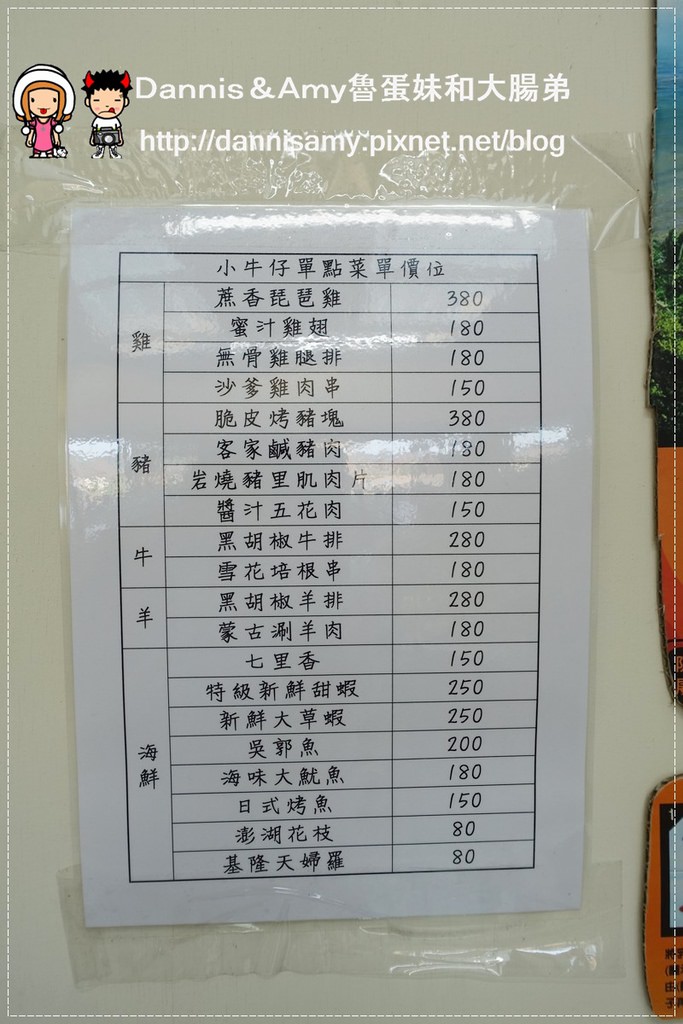 Dannis&Amy魯蛋妹和大腸弟
http://dannisamy.pixnet.net/blog
小牛仔單點菜單價位
雞
蔗香琵琶雞 380
蜜汁雞翅 180
無骨雞腿排 180
沙爹雞肉串 150
豬
脆皮烤豬塊 380
客家鹹豬肉 180
岩燒豬里肌肉片 180
醬汁五花肉 150
牛
黑胡椒牛排 280
雪花培根串 180
羊
黑胡椒羊排 280
蒙古涮羊肉 180
海鮮
七里香 150
特級新鮮甜蝦 250
新鮮大草蝦 250
吳郭魚 200
海味大魷魚 180
日式烤魚 150
澎湖花枝 80
基隆天婦羅 80